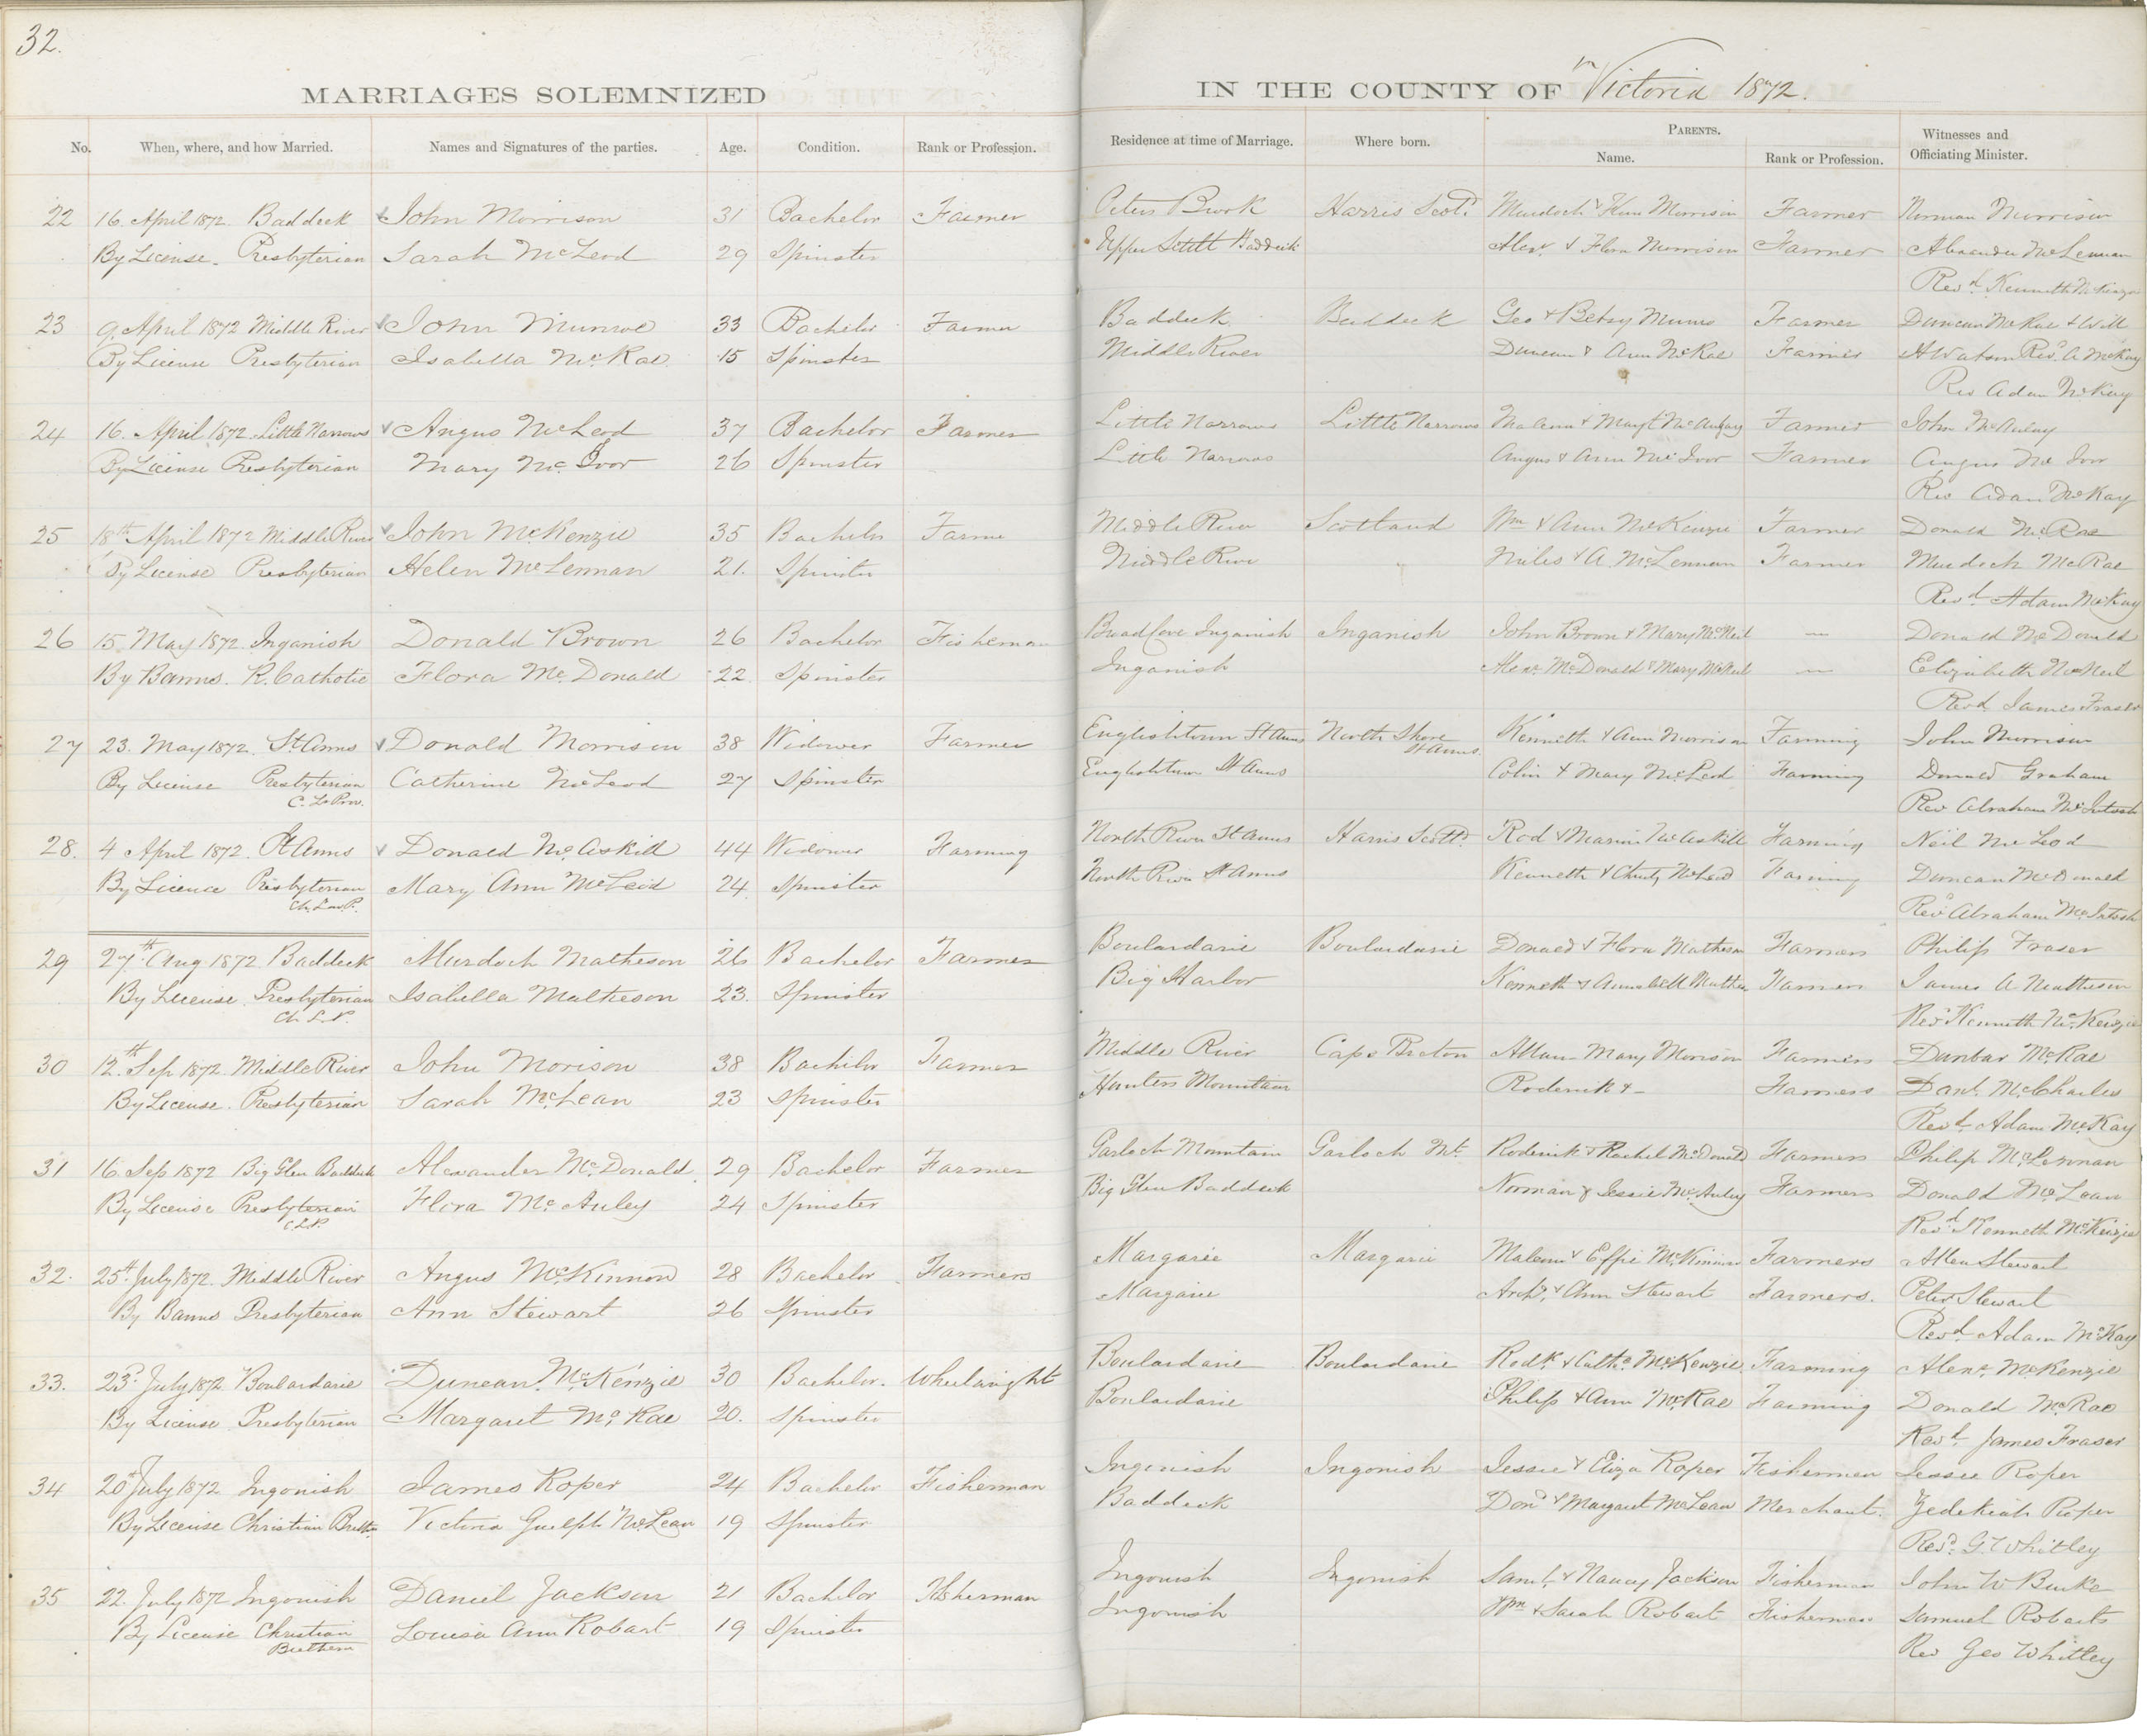 32.
MARRIAGES SOLEMNIZED IN THE COUNTY OF Victoria 1872.
No. When, where, and how Married. Names and Signatures of the parties. Age. Condition. Rank or Profession. Residence at time of Marriage. Where born. PARENTS. Name. Rank or Profession. Witnesses and Officiating Minister.
22 16 April 1872. Baddeck John Morrison 31 Bachelor Farmer Harris Scotd. Murdoch & Morrison Farmer Norman Morrison
By License. Presbyterian Sarah McLeod 29 Spinster Upper Settlt Baddeck Alexr & Flora Morrison Farmer Alexander McLennan
Revd Kenneth McKenzie
23 9 April 1872 Middle River John Munroe 33 Bachelor Farmer Baddeck Baddeck Geo & Betsy Munro Farmer Duncan McRae & Will
By License Presbyterian Isabella McRae 15 Spinster Middle River Duncan & Ann McRae Farmer H Watson Revd A McKay
Rev Adam McKay
24 16. April 1872 Little Narrows Angus McLeod 37 Bachelor Farmer Little Narrows Little Narrows Farmer John McAulay
By License Presbyterian Mary McIvor 26 Spinster Little Narrows Angus & Ann McIvor Farmer Angus McIvor
Rev Adam McKay
25 18th April 1872 Middle River John McKenzie 35 Bachelor Farmer Middle River Scotland Wm & Ann McKenzie Farmer Donald McRae
By License Presbyterian Helen McLennan 21. Spinster Middle River & A. McLennan Farmer Murdoch McRae
Revd Adam McKay
26 15 May 1872 Inganish Donald Brown 26 Bachelor Fisherman Broad Cove Inganish Inganish John Brown & Mary McNeil — Donald McDonald
By Banns. R. Catholic Flora McDonald 22 Spinster Inganish Alexr McDonald & Mary McNeil — Elizabeth McNeil
Revd James Fraser
27 23. May 1872. St Anns Donald Morrison 38 Widower Farmer Englishtown St Anns North Shore St Anns Kenneth & Ann Morrison Farming John Morrison
By License Presbyterian Catherine McLeod 27 Spinster Englishtown St Anns Colin & Mary McLeod Farming Donald Graham
C. L. Prov. Rev Abraham McIntosh
28. 4 April 1872. St Anns Donald McAskill 44 Widower Farming North River St Anns Harris Scotld. Rod & Marion McAskill Farming Neil McLeod
By Licence Presbyterian Mary Ann McLeod 24 Spinster North River St Anns Kenneth & Christy McLeod Farming Duncan McDonald
Ch. Low. P. Revd Abraham McIntosh
29 27th Aug 1872 Baddeck Murdoch Matheson 26 Bachelor Farmer Boulardarie Boulardarie Donald & Flora Matheson Farmers Philip Fraser
By License. Presbyterian Isabella Matheson 23. Spinster Big Harbor Kenneth & Annabell Mathen Farmers James A Matheson
Ch. L. P. Revd Kenneth McKenzie
30 12th Sep 1872. Middle River John Morison 38 Bachelor Farmer Middle River Cape Breton Allan Mary Morison Farmers Dunbar McRae
By License. Presbyterian Sarah McLean 23 Spinster Hunters Mountain Roderick & - Farmers Danl. McCharles
Revd. Adam McKay
31 16 Sep 1872 Big Glen Baddeck Alexander McDonald. 29 Bachelor Farmer Garloch Mountain Garloch Mt. Roderick & Rachel McDonald Farmers Philip McLennan
By License Presbyterian Flora McAuley 24 Spinster Big Glen Baddeck Norman & Jessie McAuley Farmers Donald McLean
C.L.P. Revd Kenneth McKenzie
32. 25th July 1872 Middle River Angus McKinnon 28 Bachelor Farmers Margarie Margarie Malcom & Effie McKinnon Farmers Allen Stewart
By Banns Presbyterian Ann Stewart 26 Spinster Margarie Archd. & Ann Stewart Farmers. Peter Stewart
Revd. Adam McKay
33. 23d July 1872 Boulardarie Duncan McKenzie 30 Bachelor. Wheelwright Boulardarie Boulardarie Rodk & Cathe McKenzie Farming Alexr McKenzie
By License Presbyterian Margaret McRae 20. Spinster Boulardarie Philip & Ann McRae Farming Donald McRae
Revd. James Fraser
34 20th July 1872 Ingonish James Roper 24 Bachelor Fisherman Ingonish Ingonish Jessie & Eliza Roper Fisherman Jessie Roper
By License Christian Brethn Victoria Guelph McLean 19 Spinster Baddeck Dond & Margaret McLean Merchant. Zedekiah Roper
Revd. G. Whitley
35 22 July 1872 Ingonish Daniel Jackson 21 Bachelor Fisherman Ingonish Ingonish Saml. & Nancy Jackson Fisherman John W Burke
By License Christian Louisa Ann Robart 19 Spinster Ingonish Wm & Sarah Robart Fisherman Samuel Robarts
Brethern Rev Geo Whitley